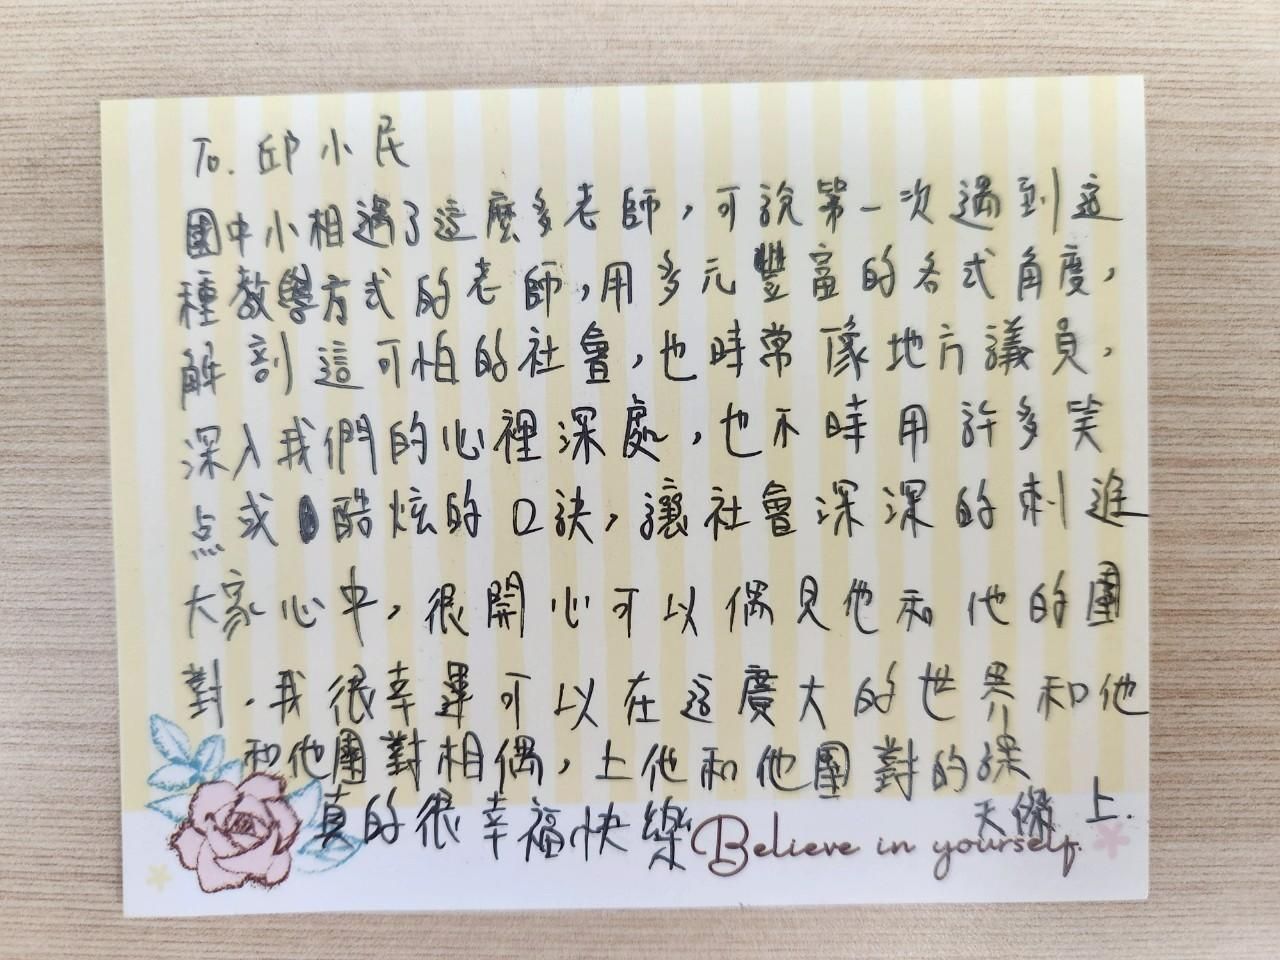 To. 邱小民
國中小相遇了這麼多老師，可說第一次遇到這
種教學方式的老師，用多元豐富的各式角度，
解剖這可怕的社會，也時常像地方議員，
深入我們的心裡深處，也不時用許多笑
点或酷炫的口訣，讓社會深深的刺進
大家心中，很開心可以偶見他和他的團
對，我很幸運可以在這廣大的世界和他
和他團對相偶，上他和他團對的課
真的很幸福快樂
天傑 上.
Believe in yourself.